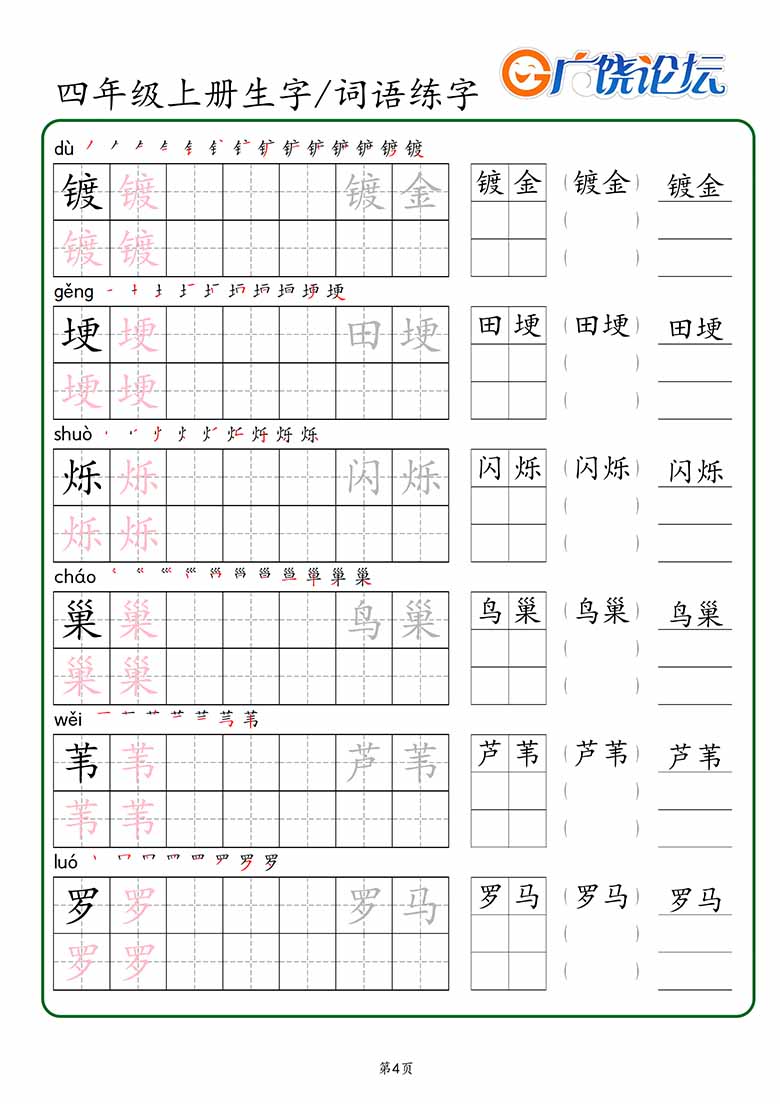 四年级上册生字/词语练字
广饶论坛
dù
镀 镀 镀 金 镀 金 (镀金) 镀金
镀 镀 ( )
( )
gěng
埂 埂 田 埂 田 埂 (田埂) 田埂
埂 埂 ( )
( )
shuò
烁 烁 闪 烁 闪 烁 (闪烁) 闪烁
烁 烁 ( )
( )
cháo
巢 巢 鸟 巢 鸟 巢 (鸟巢) 鸟巢
巢 巢 ( )
( )
wěi
苇 苇 芦 苇 芦 苇 (芦苇) 芦苇
苇 苇 ( )
( )
luó
罗 罗 罗 马 罗 马 (罗马) 罗马
罗 罗 ( )
( )
第4页